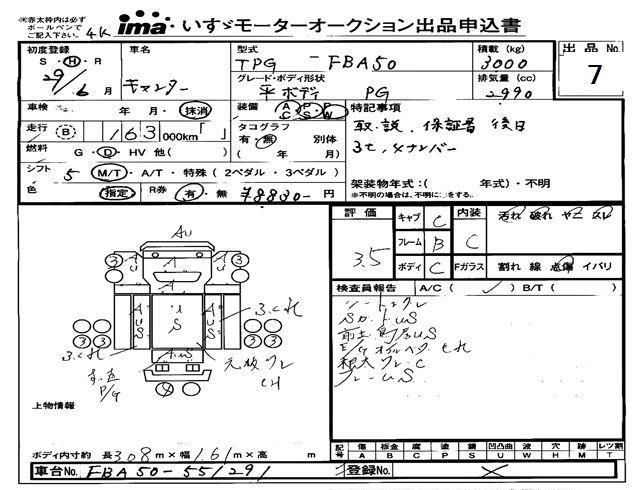 ※赤太枠内は必ず
ボールペンで
ご記入下さい。 4K ima いすゞモーターオークション出品申込書
初度登録 車名 型式 積載 (kg) 出品No.
S・H・R 29/6月 キャンター TPG - FBA50 3000 7
グレード・ボディ形状 排気量 (cc)
平ボデイ PG 2990
車検 年 月・抹消 装備 A/C P/S P/W 特記事項
走行 B 163 000km「 」 タコグラフ 有・無 別体 取説、保証書 後日
燃料 G・D・HV 他( ) ( 年 月) 3t、4ナンバー
シフト 5 M/T・A/T・特殊 (2ペダル・3ペダル)
架装物年式:( 年式)・不明
色 指定 R券 有・無 ¥8830- 円 ※不明の場合は、不明に○をする。
評価 3.5 キャブ C 内装 C 汚れ 破れ ヤニ スレ
フレーム B
ボディ C Fガラス 割れ 線 点傷 イバリ
検査員報告 A/C ( ) B/T ( )
AU
3 3
A
AUS
US
AUS
3 3
3 3
上物情報
ボディ内寸約 長 3.08 m×幅 1.61 m×高 m
記号 傷 板金 腐 塗 錆 凹凸曲 波 穴 跡 レツ割
A B C P S U W H M T
車台No. FBA50-551291 登録No.